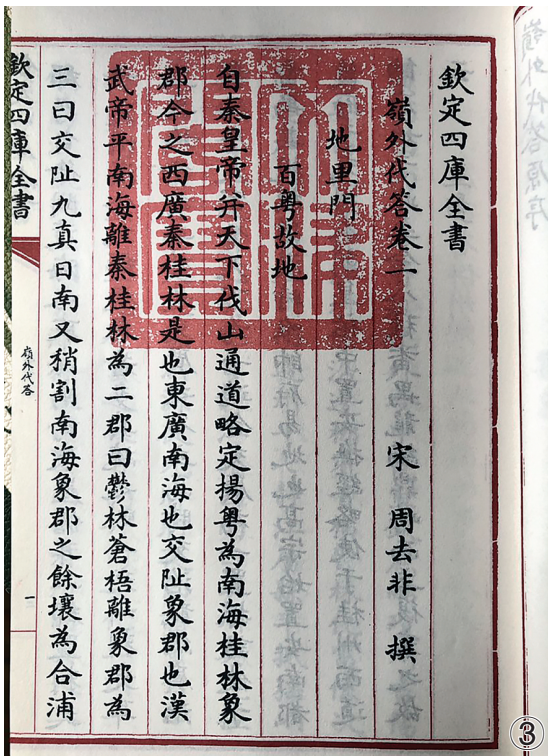 欽定四庫全書
嶺外代答卷一
宋 周去非 撰
地里門
百粤故地
自秦皇帝并天下伐山通道略定揚粤為南海桂林象
郡今之西廣秦桂林是也東廣南海也交阯象郡也漢
武帝平南海離秦桂林為二郡曰鬱林蒼梧離象郡為
三曰交阯九真日南又稍割南海象郡之餘壤為合浦
欽定四庫全書
嶺外代答
一
③